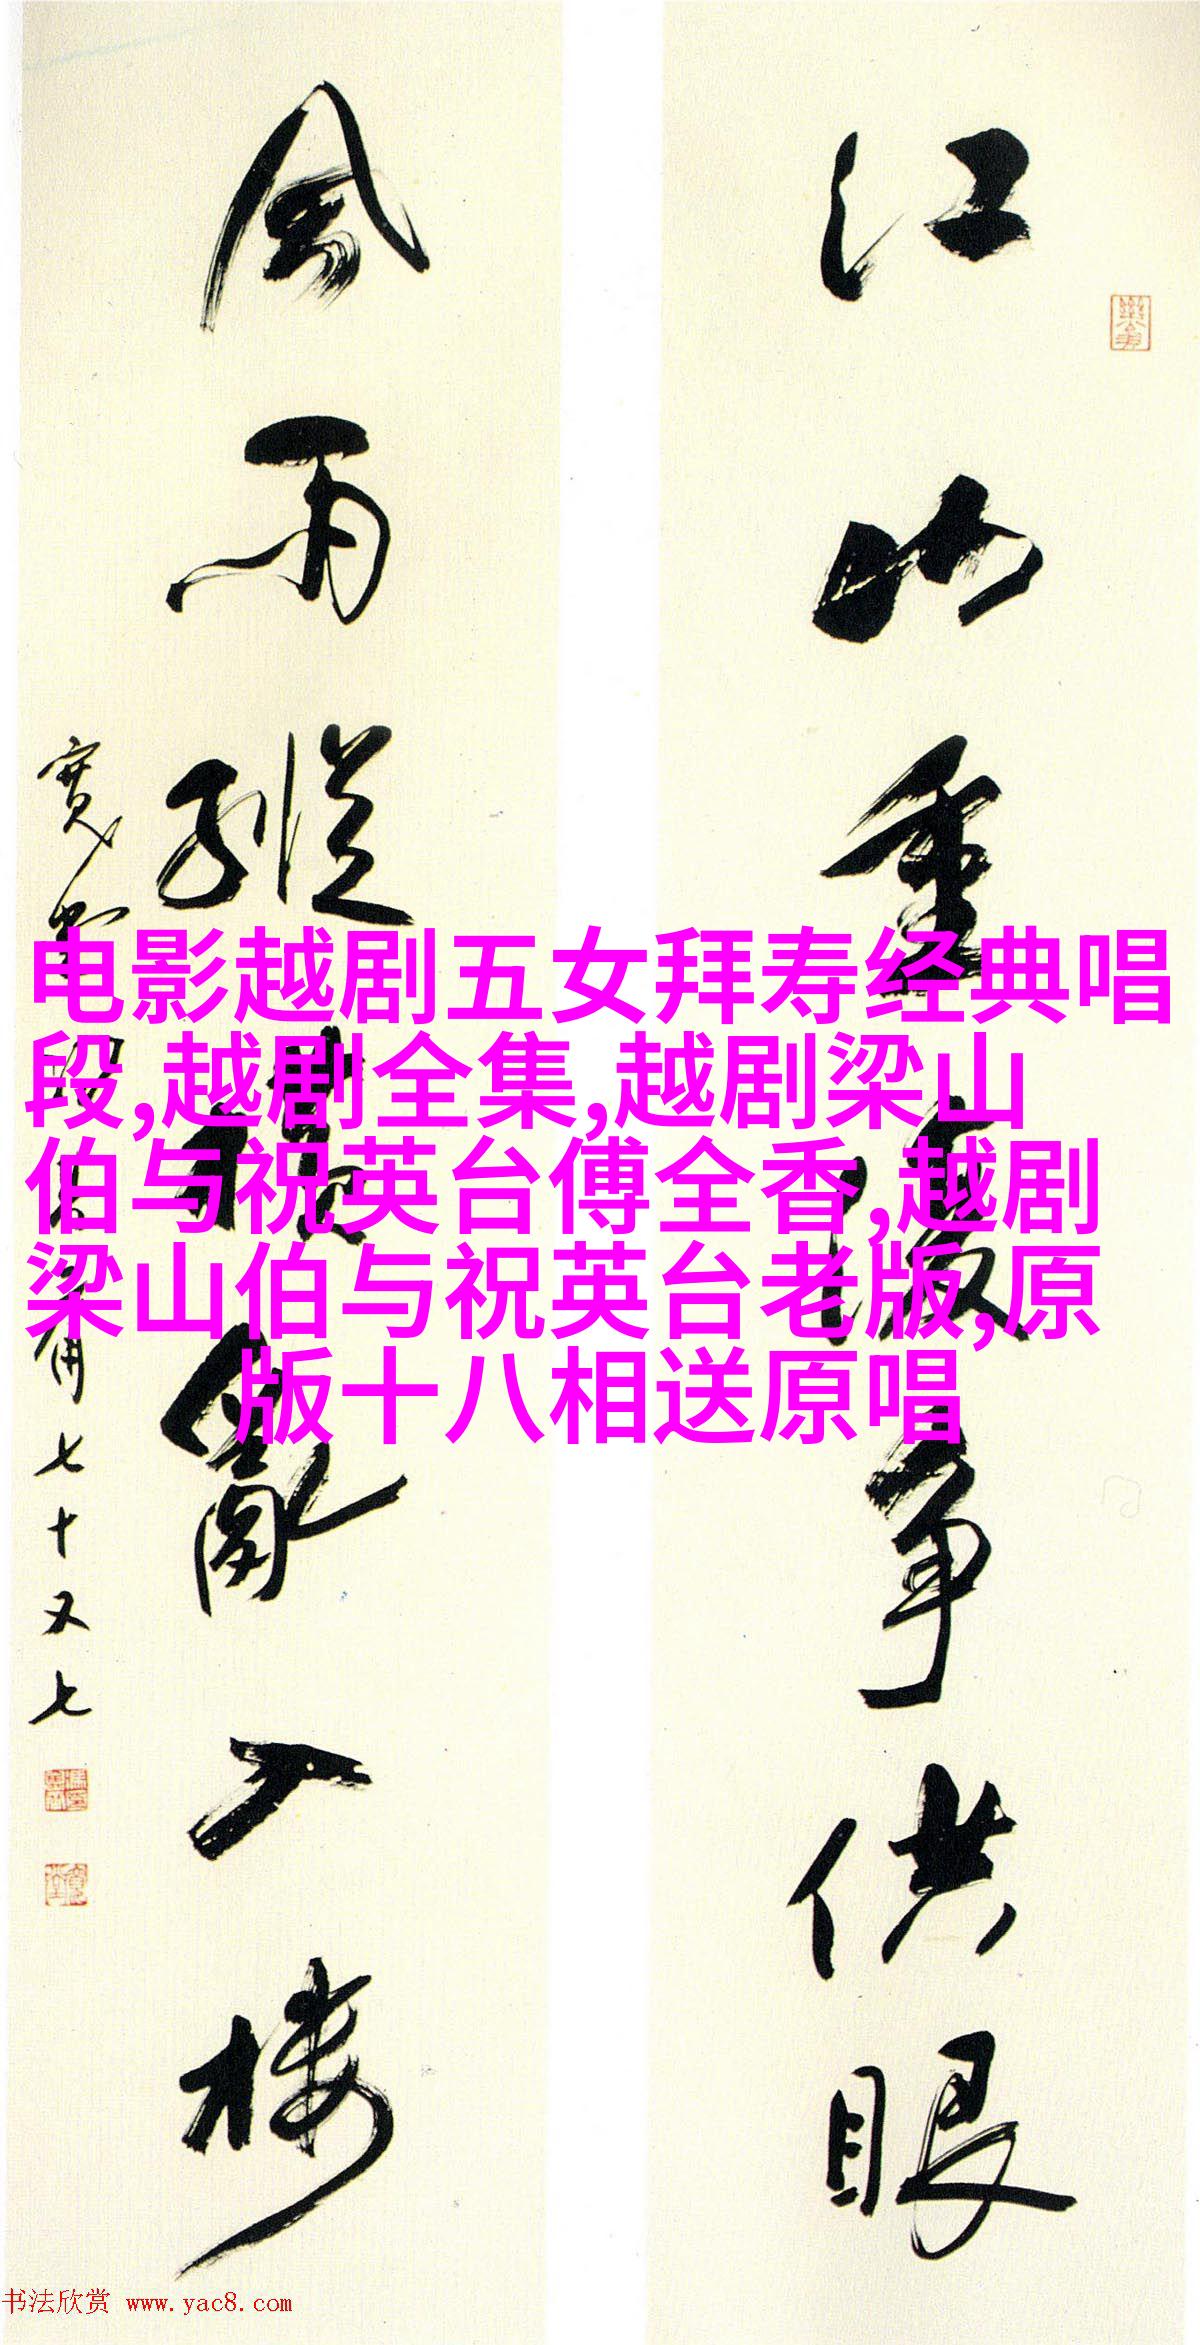 江山重複争供眼
风雨縱橫亂入楼
七十又七
电影越剧五女拜寿经典唱
段,越剧全集,越剧梁山
伯与祝英台傅全香,越剧
梁山伯与祝英台老版,原
版十八相送原唱
书法欣赏 www.yac8.com